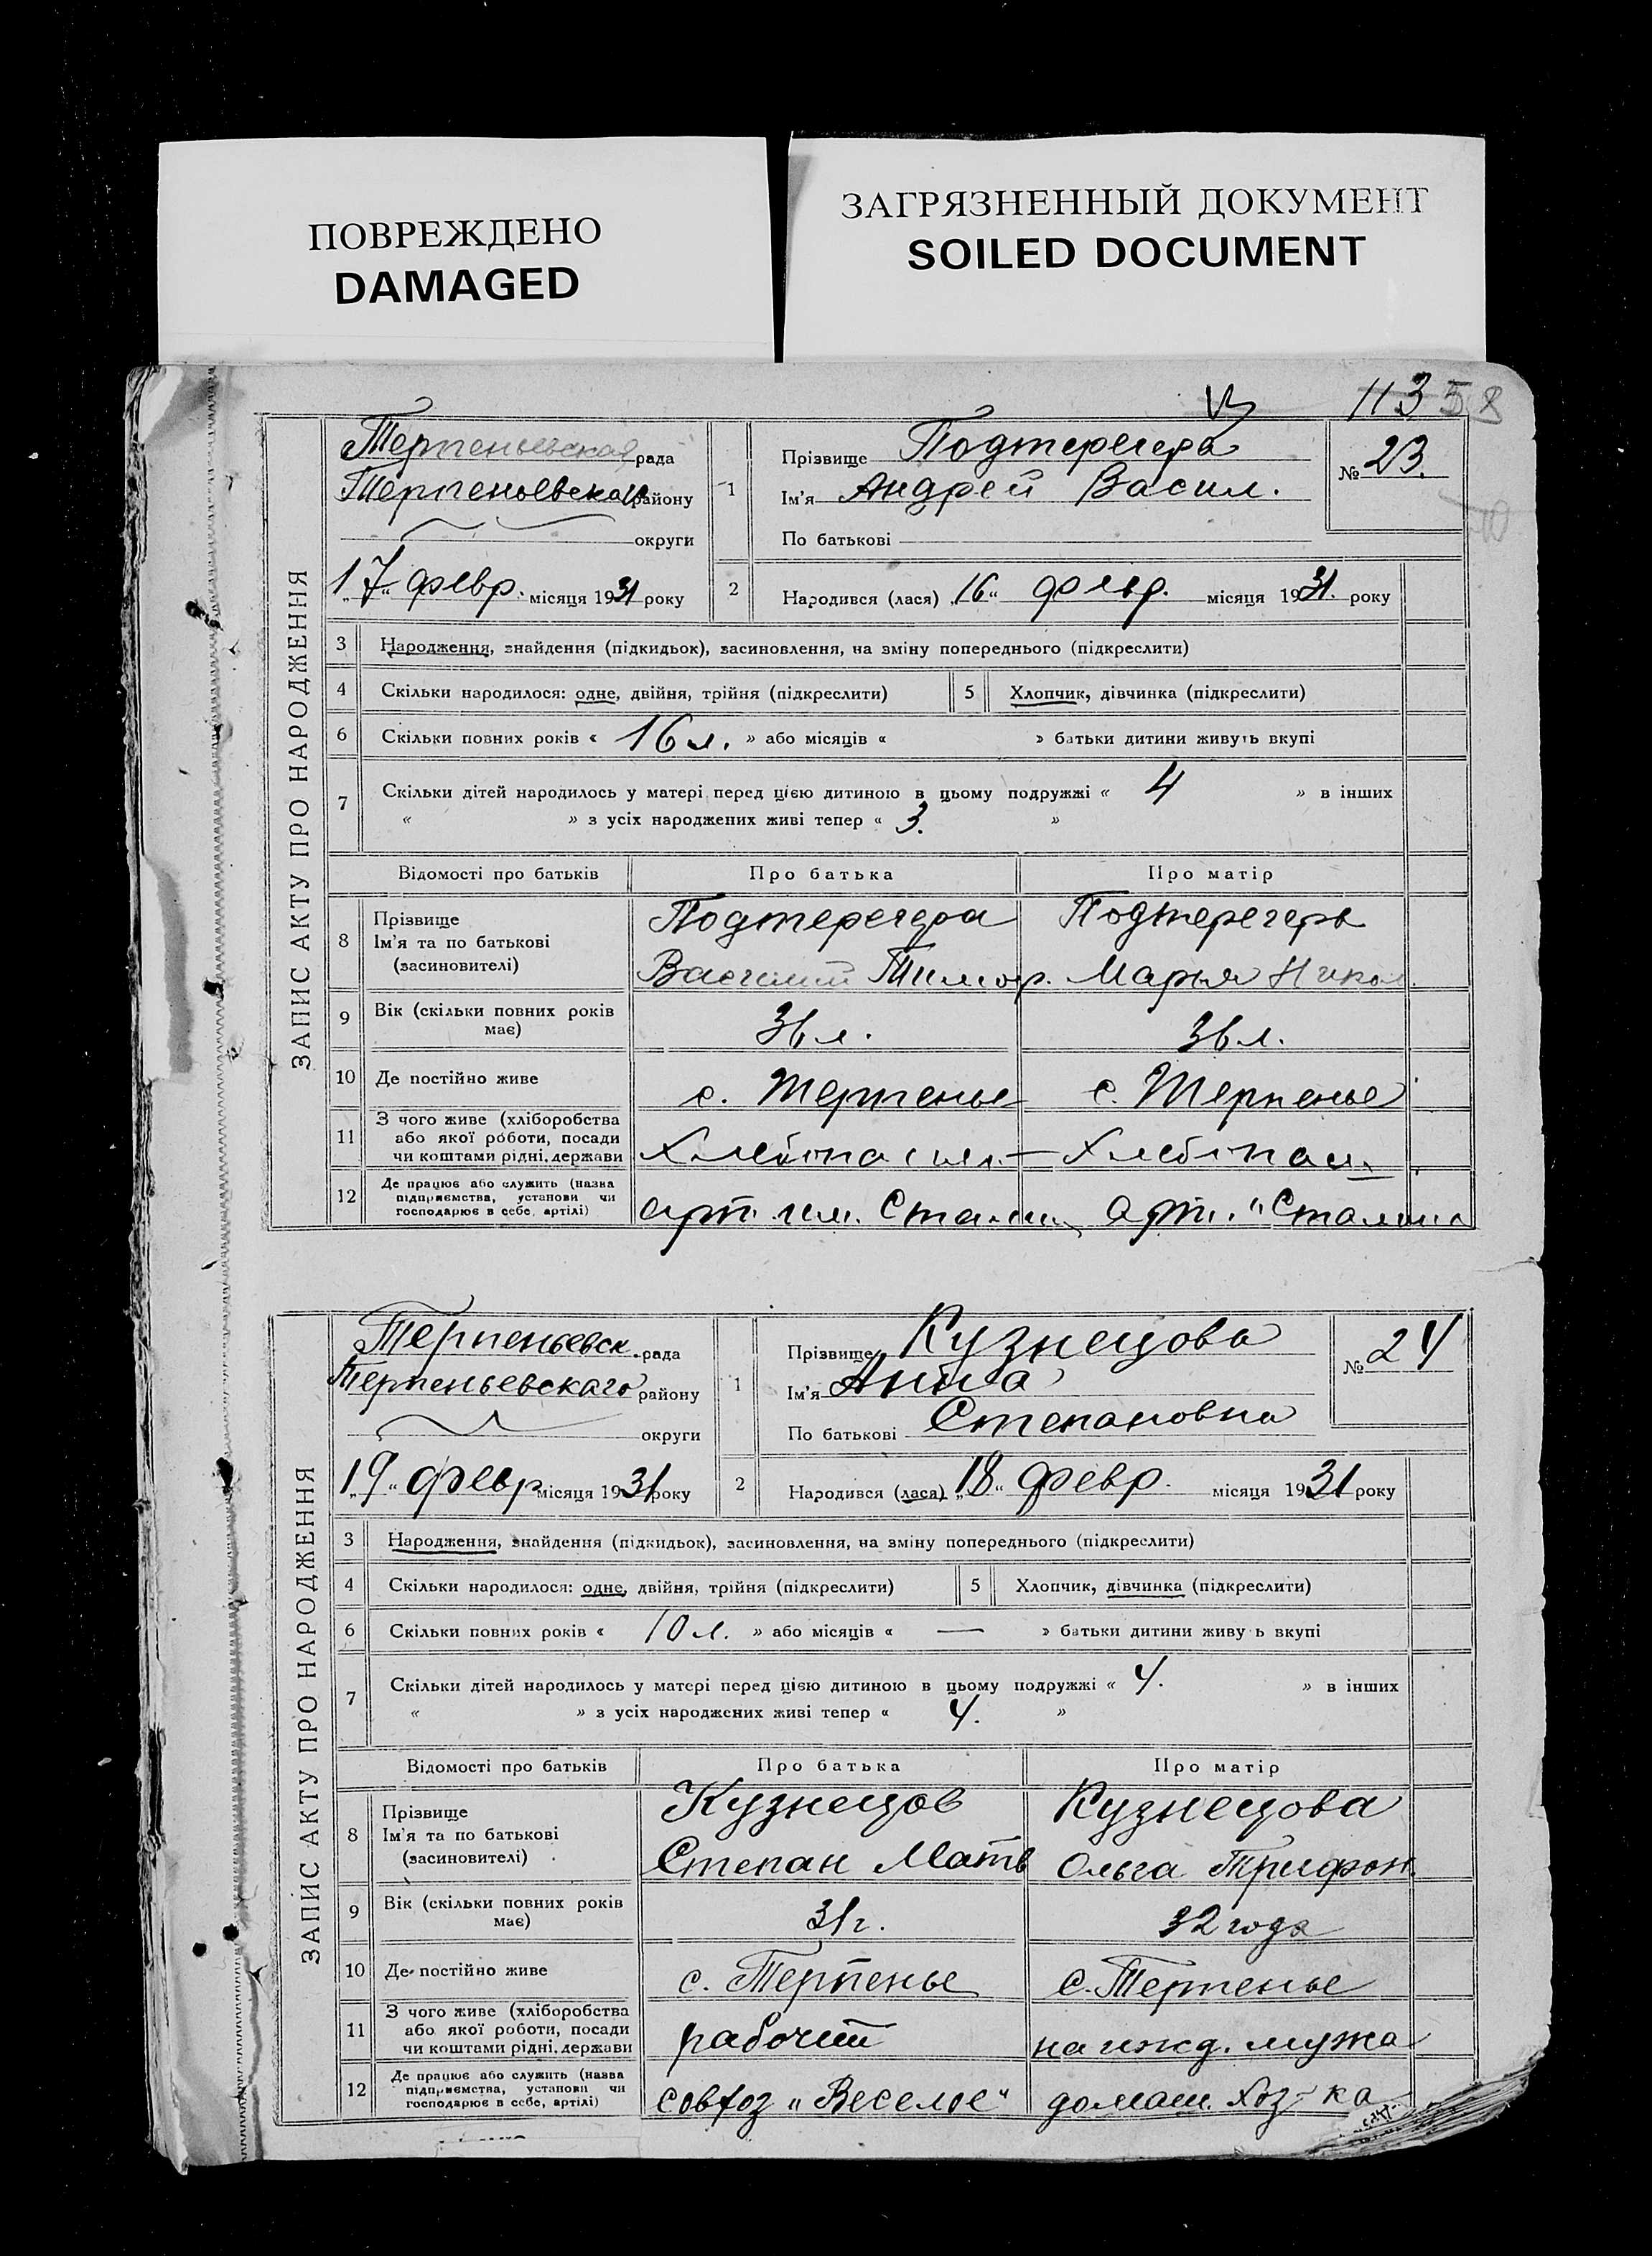 ПОВРЕЖДЕНО
DAMAGED
ЗАГРЯЗНЕННЫЙ ДОКУМЕНТ
SOILED DOCUMENT
113 58
ЗАПИС АКТУ ПРО НАРОДЖЕННЯ
Терпеньевская рада
Терпеньевская району
округи
„17“ февр. місяця 1931 року
1
Прізвище Подтерегера
Ім'я Андрей Васил.
По батькові
№ 23.
2
Народився (лася) „16“ февр. місяця 1931. року
3 Народження, знайдення (підкидьок), засиновлення, на зміну попереднього (підкреслити)
4 Скільки народилося: одне, двійня, трійня (підкреслити) 5 Хлопчик, дівчинка (підкреслити)
6 Скільки повних років « 16 л. » або місяців « » батьки дитини живуть вкупі
7 Скільки дітей народилось у матері перед цією дитиною в цьому подружжі « 4 » в інших
« » з усіх народжених живі тепер « 3. »
Відомості про батьків Про батька Про матір
8 Прізвище
Ім'я та по батькові
(засиновителі)
Подтерегера
Василий Тимоф.
Подтерегера
Марья Никол.
9 Вік (скільки повних років має) 36 л. 36 л.
10 Де постійно живе с. Терпенье с. Терпенье
11 З чого живе (хліборобства
або якої роботи, посади
чи коштами рідні, держави
Хлебопаш.
12 Де працює або служить (назва
підприємства, установи чи
господарює в себе, артілі)
арт. им. Сталин арт. "Сталина
ЗАПИС АКТУ ПРО НАРОДЖЕННЯ
Терпеньевск. рада
Терпеньевскаго району
округи
„19“ февр місяця 1931 року
1
Прізвище Кузнецова
Ім'я Анна
По батькові Степановна
№ 24
2
Народився (лася) „18“ февр. місяця 1931 року
3 Народження, знайдення (підкидьок), засиновлення, на зміну попереднього (підкреслити)
4 Скільки народилося: одне, двійня, трійня (підкреслити) 5 Хлопчик, дівчинка (підкреслити)
6 Скільки повних років « 10 л. » або місяців « — » батьки дитини живуть вкупі
7 Скільки дітей народилось у матері перед цією дитиною в цьому подружжі « 4. » в інших
« » з усіх народжених живі тепер « 4. »
Відомості про батьків Про батька Про матір
8 Прізвище
Ім'я та по батькові
(засиновителі)
Кузнецов
Степан Матв
Кузнецова
Ольга Трифон.
9 Вік (скільки повних років має) 31 г. 32 года
10 Де постійно живе с. Терпенье с. Терпенье
11 З чого живе (хліборобства
або якої роботи, посади
чи коштами рідні, держави
рабочий на ижд. мужа
12 Де працює або служить (назва
підприємства, установи чи
господарює в себе, артілі)
совхоз „Веселое“ домаш. хоз-ка